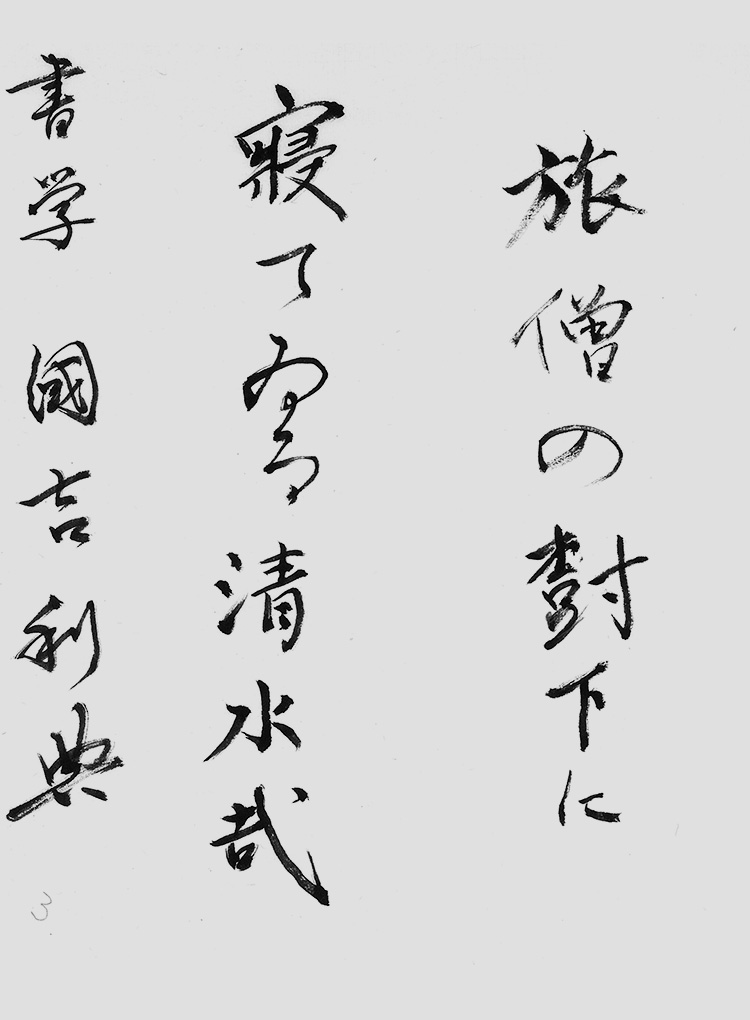 旅僧の樹下に
寢てゐる清水哉
書学 國吉利典
3